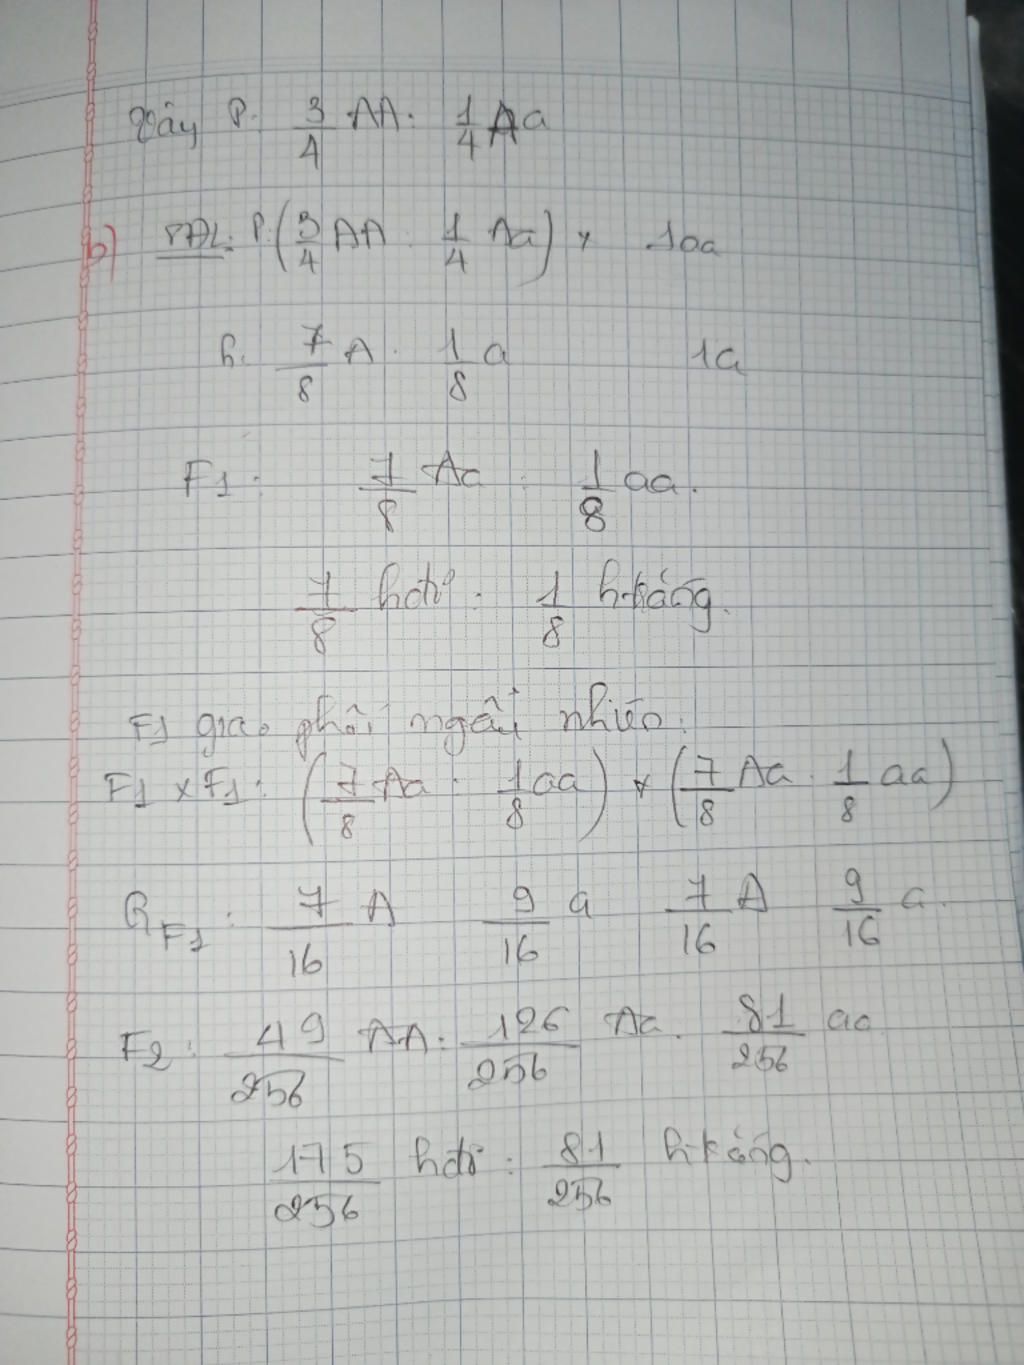 Vậy P: 3/4 AA : 1/4 Aa
b) SĐL: P: (3/4 AA : 1/4 Aa) x 1aa
G: 7/8 A : 1/8 a 1a
F1: 7/8 Aa : 1/8 aa.
7/8 hđỏ : 1/8 h.trắng.
F1 giao phối ngẫu nhiên:
F1 x F1: (7/8 Aa : 1/8 aa) x (7/8 Aa : 1/8 aa)
G F1: 7/16 A 9/16 a 7/16 A 9/16 a.
F2: 49/256 AA : 126/256 Aa : 81/256 aa
175/256 hđỏ : 81/256 h.trắng.